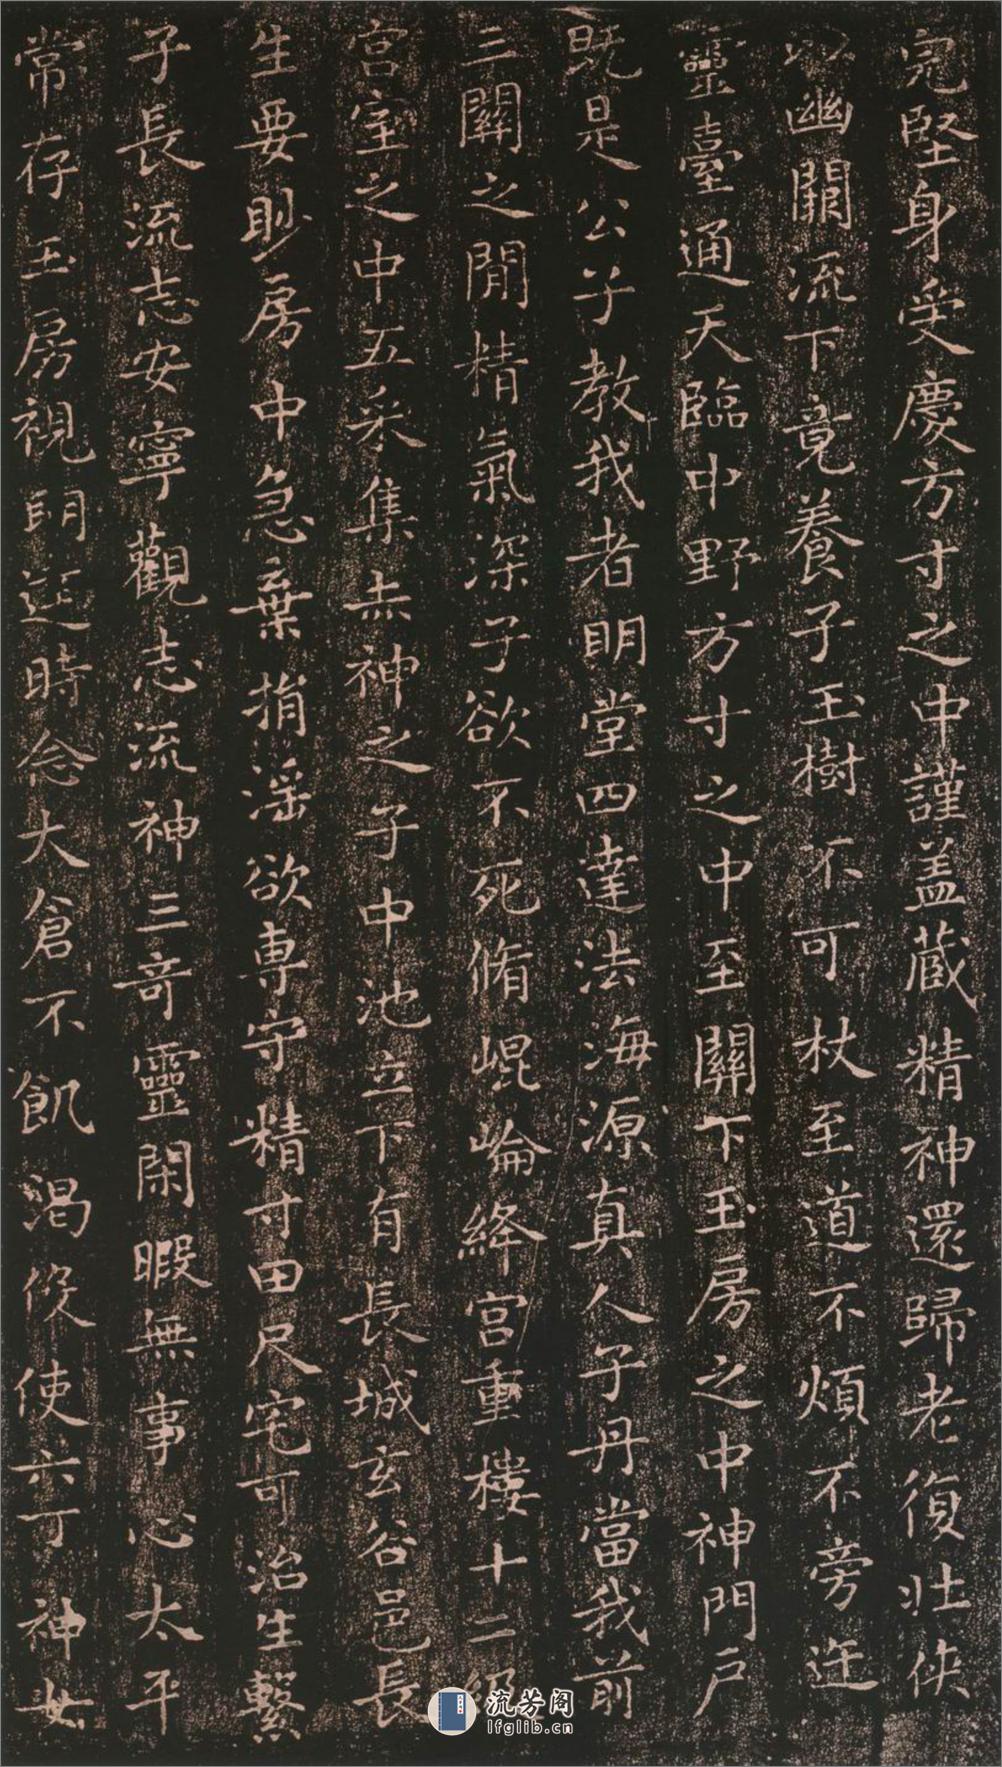 完堅身受慶方寸之中謹盖蔵精神還歸老復壮俠
以幽關流下竟養子玉樹不可杖至道不煩不旁迕
靈臺通天臨中野方寸之中至關下玉房之中神門戶
既是公子教我者明堂四達法海源真人子丹當我前
三關之間精氣深子欲不死脩崐崘絳宮重樓十二級
宮室之中五采集赤神之子中池立下有長城玄谷邑長
生要眇房中急棄捐滛欲専守精寸田尺宅可治生繫
子長流志安寧觀志流神三奇靈閑暇無事心太平
常存玉房視明达時念大倉不飢渴伇使六丁神女
流芳阁
lfglib.cn